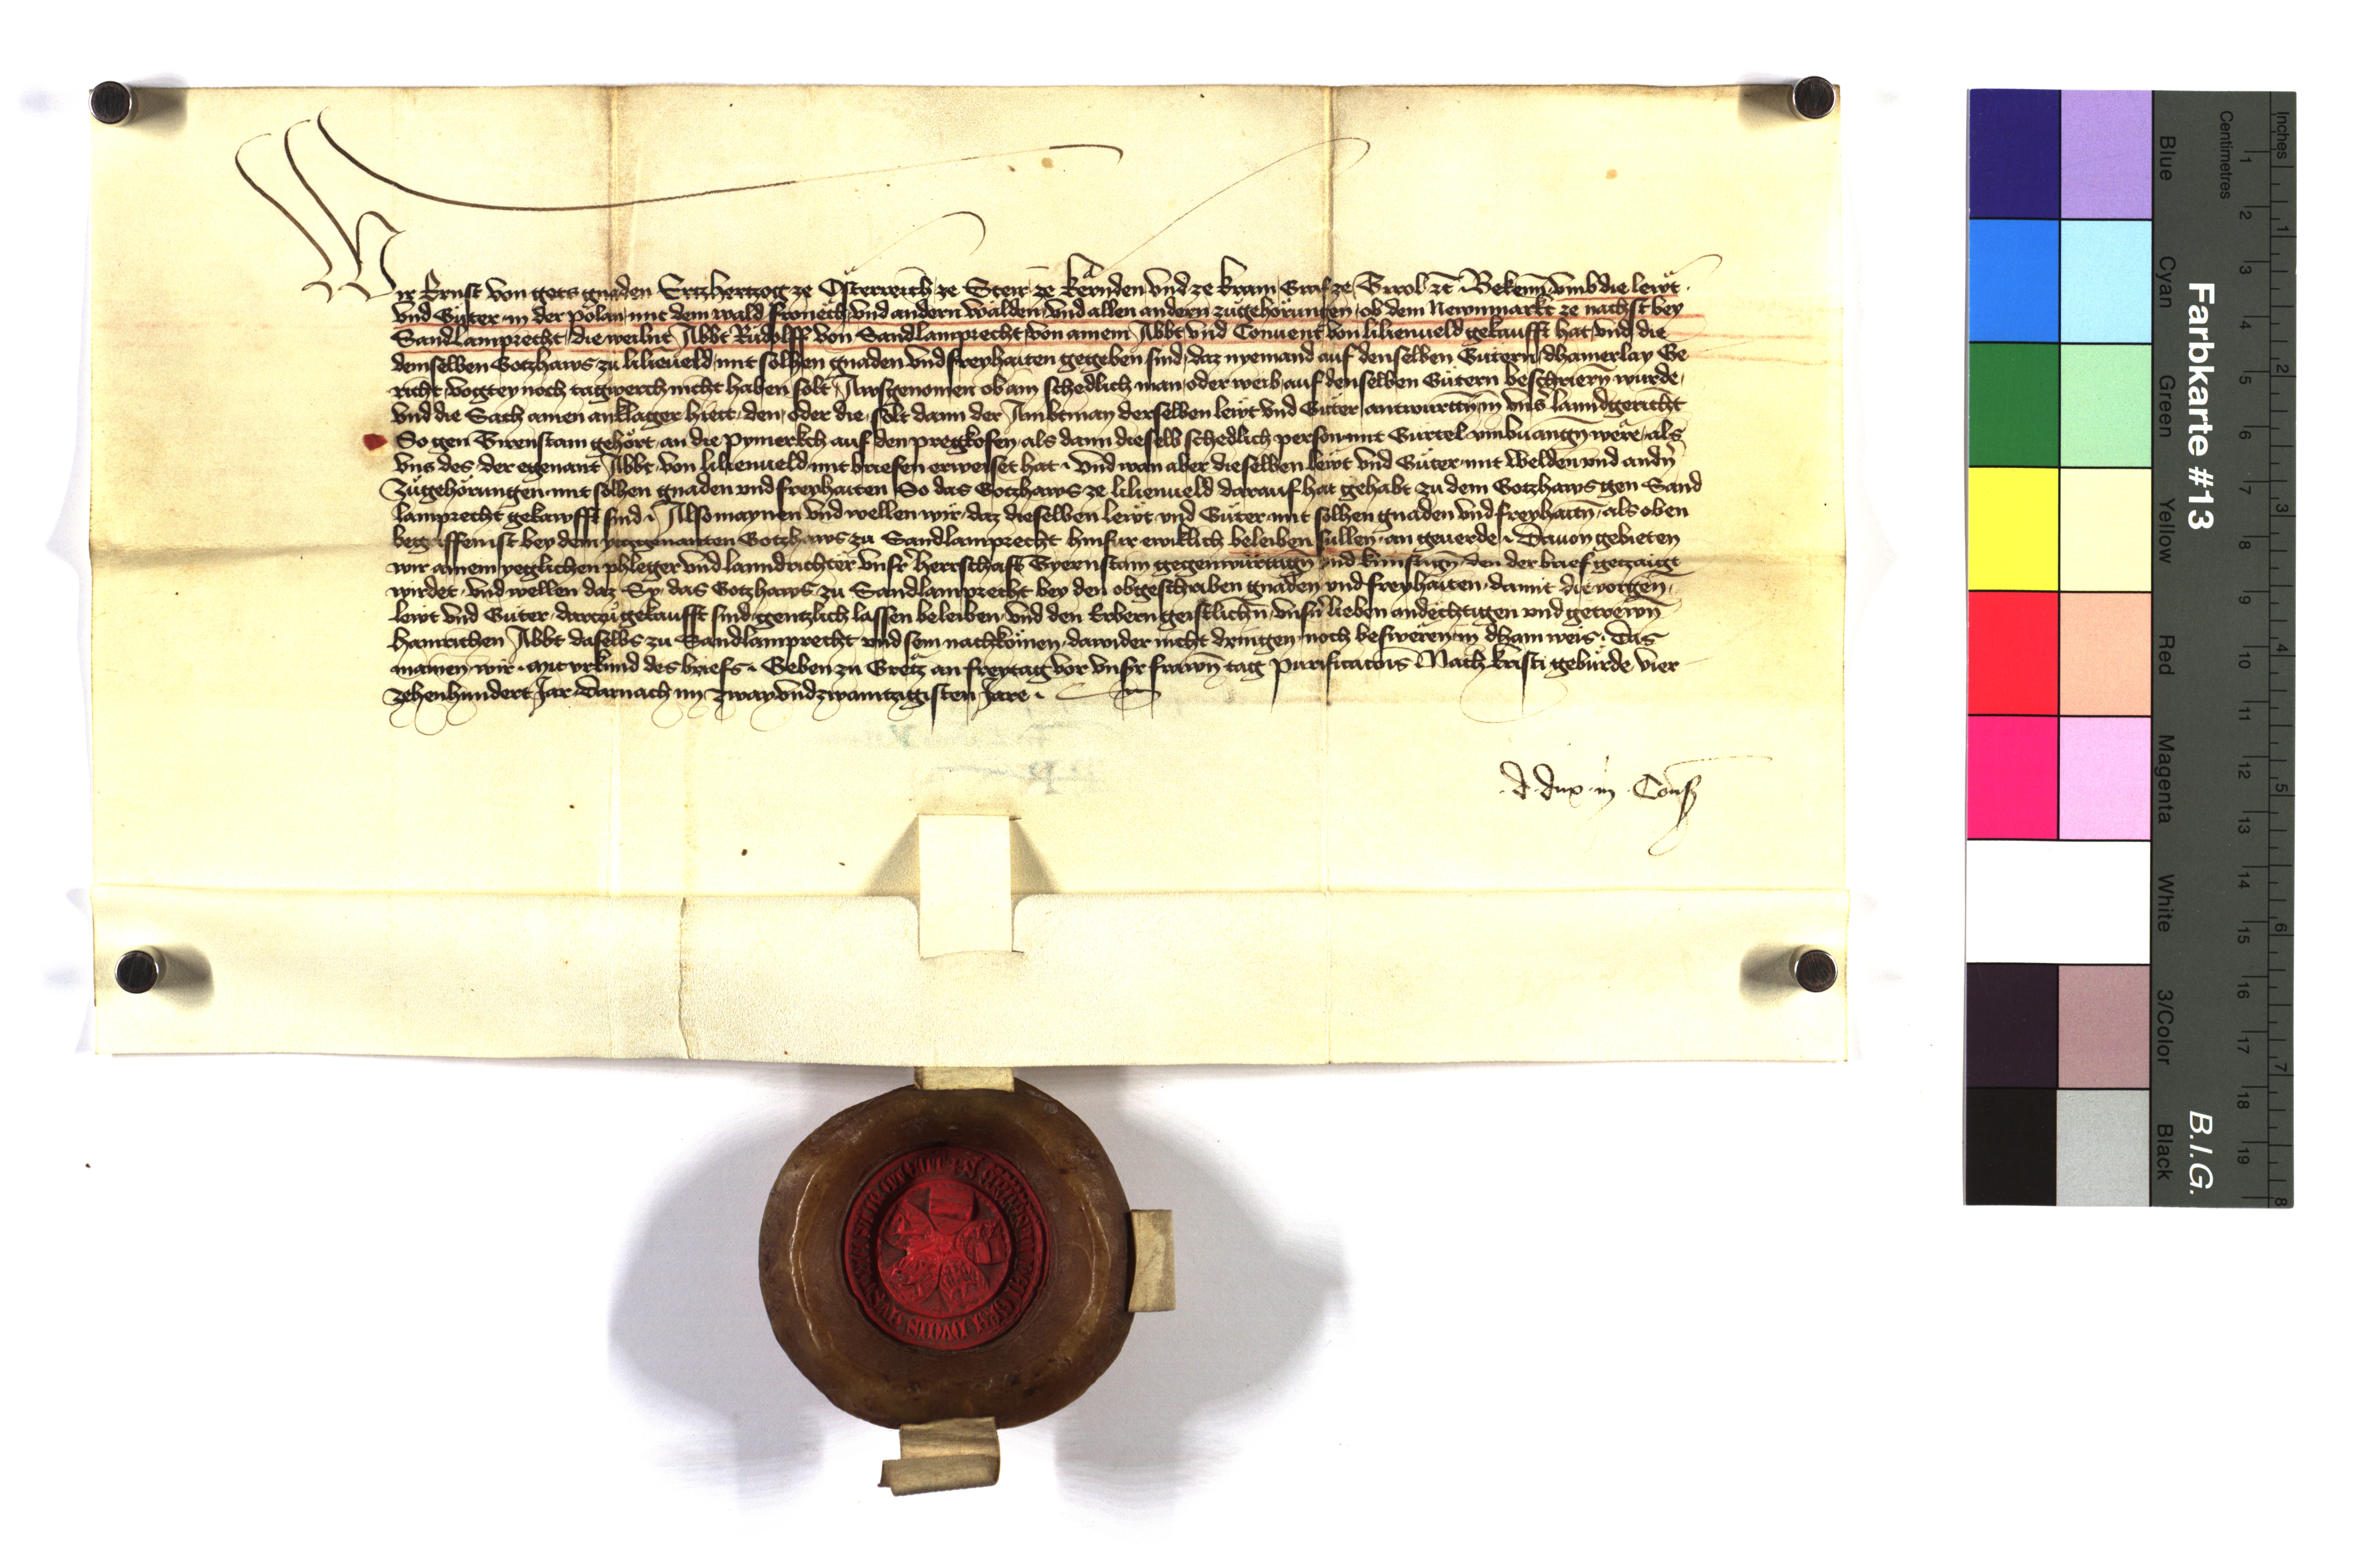 Wir Ernst von gots gnaden Ertzhertzog ze Österreich ze Steir ze Kernden vnd ze Krain Graf ze Tirol etc Bekenn vmb die lewt
vnd Güter in der Polan mit dem wald Froneth vnd andern wälden vnd allen andern zügehörungen ob dem Newnmarkt ze nachst bey
Sandlamprecht die weilnt Abbt Rudolff von Sandlamprecht von ainem Abbt vnd Conuent von lilienueld gekaufft hat vnd die
demselben Gotzhaws zu lilieueld mit solhen gnaden vnd freyhaiten gegeben sind daz nyemand auf denselben Gütern dhainerlay Ge
richt vogtey noch tagwerch nicht haben solt Ausgenomen ob ain schedlich man oder weib auf denselben Gütern beschriern wurde
vnd die Sach ainen anklager hiett den oder die solt dann der Ambtman derselben lewt vnd Güter antwurttn in vns landgericht
So gen Tirenstain gehört an die Pymerkch auf den pregkofen als dann dieselb schedlich person mit Gurtel vmbuangn were als
vns des der egenant Abbt von lilienueld mit briefen erweiset hat vnd wan aber dieselben lewt vnd Güter mit Welden vnd andn
Zügehörungen mit solhen gnaden vnd freyhaiten So das Gotzhaws ze lilienueld darauf hat gehabt zu dem Gotzhaws gen Sand
lamprecht gekawfft sind Also maynen vnd wellen wir daz dieselben lewt vnd Güter mit solhen gnaden vnd freyhaitn als oben
begriffen ist bey dem ytzgenanten Gotzhaws zu Sandlamprecht hinfur ewiklich beleiben sullen an geuerde Dauon gebieten
wir ainem yeglichen phleger vnd lanndrichter vnsr herrschafft Tyernstain gegenwürttign vnd künftign den der brief getzaigt
wirdet vnd wellen daz Sy das Gotzhaws zu Sandlamprecht bey den obgeschriben gnaden vnd freyhaiten damit die vorgen
lewt vnd Güter dartzu gekaufft sind gentzlich lassen beleiben vnd den Erbern geistlichn vnsn lieben andechtigen vnd getrewn
Hainrichen Abbt daselbs zu Sandlamprecht vnd sein nachkomen dawider nicht dringen noch besweren in dhain weis Das
mainen wir mit vrkund des briefs Geben zu Gretz an freytag vor vnsr frawn tag Purificatois Nach kristi geburde vier
zehenhundert Jar darnach im zway vnd zwaintzigisten Jare
d dux in Cons
Farbkarte #13
B.I.G.
Blue Cyan Green Yellow Red Magenta White 3/Color Black
Inches 1 2 3 4 5 6 7 8
Centimetres 1 2 3 4 5 6 7 8 9 10 11 12 13 14 15 16 17 18 19